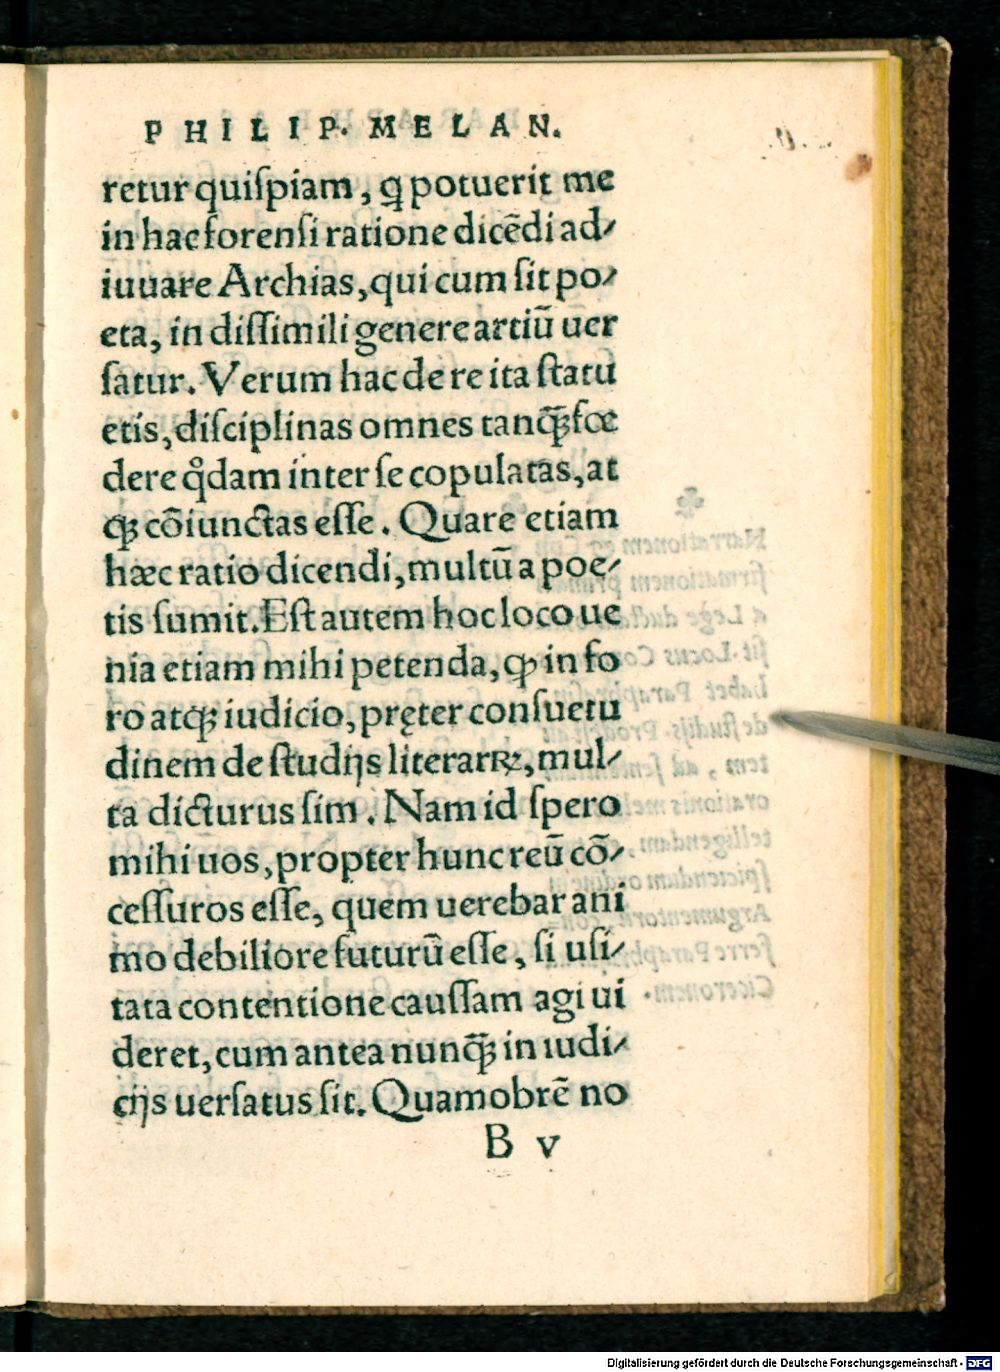 PHILIP. MELAN.
retur quiſpiam, ꝙ potuerit me
in hac forenſi ratione dicēdi ad⸗
iuuare Archias, qui cum ſit po⸗
eta, in diſſimili genere artiū uer
ſatur. Verum hac de re ita ſtatu
etis, diſciplinas omnes tanꝗ̃ fœ
dere qͦdam inter ſe copulatas, at
qꝫ cōiunctas eſſe. Quare etiam
hæc ratio dicendi, multū a poe⸗
tis ſumit. Eſt autem hoc loco ue
nia etiam mihi petenda, ꝙ in fo
ro atqꝫ iudicio, pręter conſuetu
dinem de ſtudijs literarꝝ, mul⸗
ta dicturus ſim. Nam id ſpero
mihi uos, propter hunc reū cō⸗
ceſſuros eſſe, quem uerebar ani
mo debiliore futurū eſſe, ſi uſi⸗
tata contentione cauſſam agi ui
deret, cum antea nunꝗ̃ in iudi⸗
cijs uerſatus ſit. Quamobrē no
B v
Digitalisierung gefördert durch die Deutsche Forschungsgemeinschaft - DFG